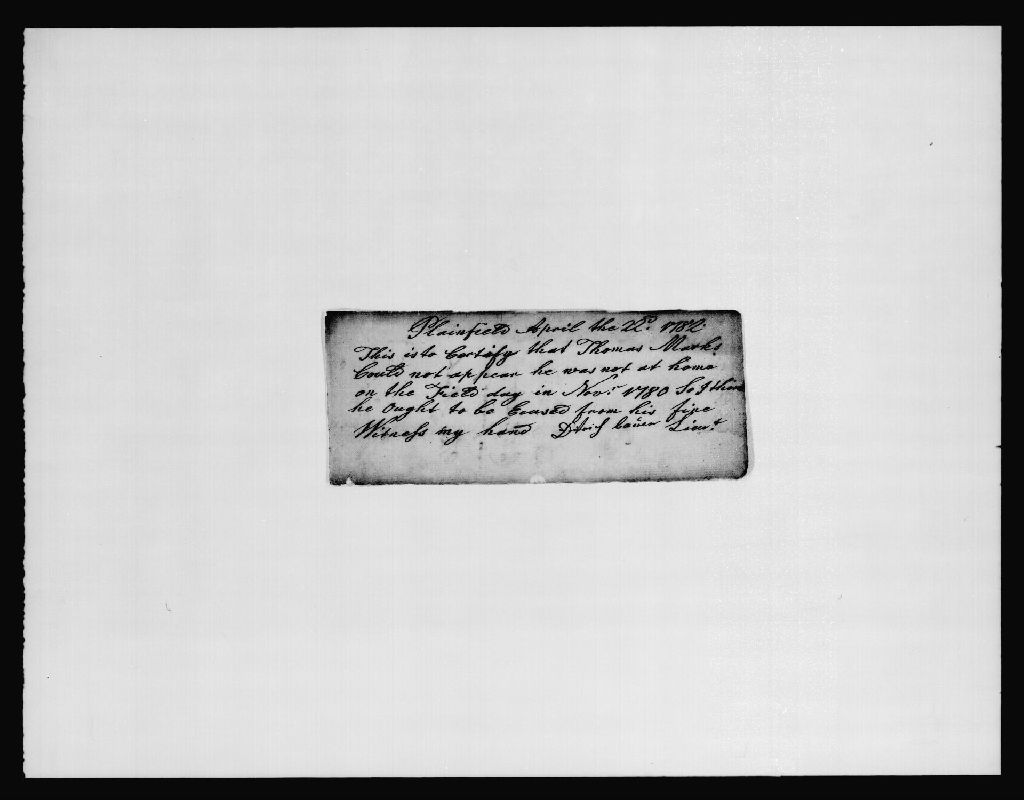 Plainfield April the 22d. 1782
This is to Certify that Thomas Marks
Could not appear he was not at home
on the Field day in Novr. 1780 So I think
he ought to be Eeased from his fine
Witness my hand Lieut